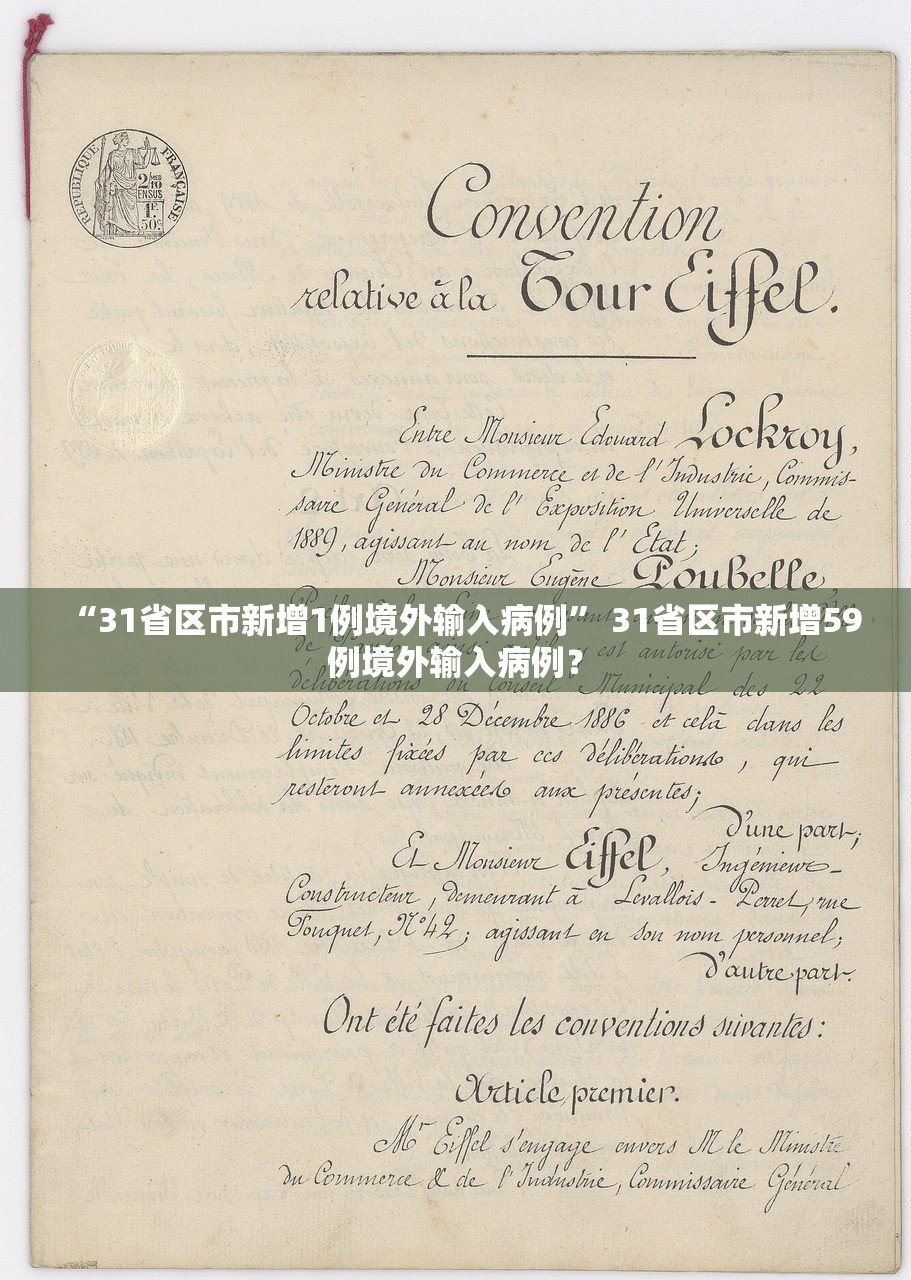 RÉPUBLIQUE FRANÇAISE
2/10
EN SUS
1F.
50c
Convention
relative à la Tour Eiffel.
Entre Monsieur Edouard Lockroy,
Ministre du Commerce et de l'Industrie, Commis-
saire Général de l'Exposition Universelle de
1889, agissant au nom de l'Etat;
Monsieur Eugène Poubelle,
“31省区市新增1例境外输入病例” 31省区市新增59
est autorisé par les
例境外输入病例？
délibérations du Conseil Municipal des 22
Octobre et 28 Décembre 1886 et celà dans les
limites fixées par ces délibérations, qui
resteront annexées aux présentes;
d'une part;
Et Monsieur Eiffel, Ingénieur-
Constructeur, demeurant à Levallois-Perret, rue
Fouquet, N° 42; agissant en son nom personnel;
d'autre part.
Ont été faites les conventions suivantes:
Article premier.
Mr Eiffel s'engage envers M le Ministre
du Commerce & de l'Industrie, Commissaire Général